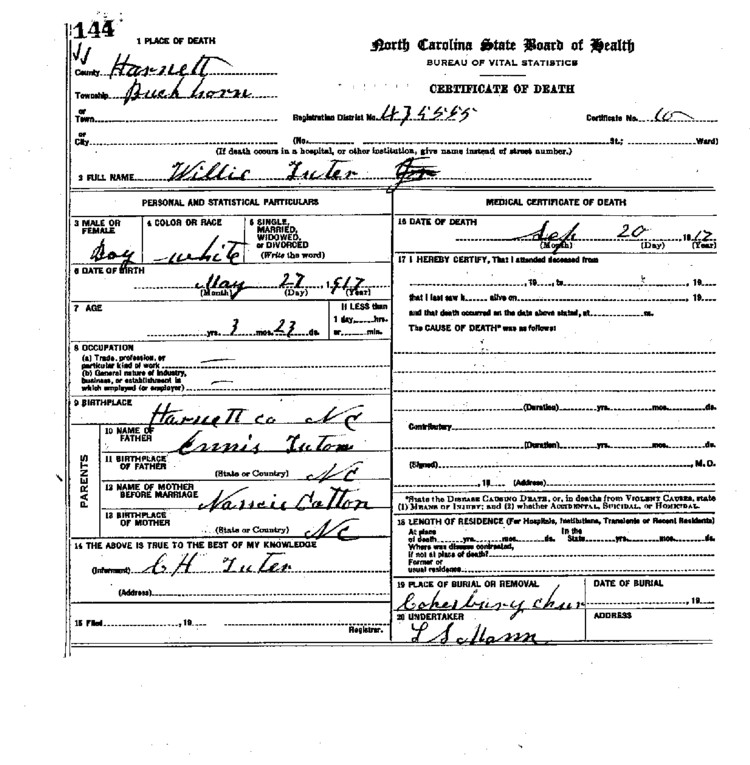 144
1 PLACE OF DEATH
North Carolina State Board of Health
BUREAU OF VITAL STATISTICS
CERTIFICATE OF DEATH
County Harnett
Township Buckhorn
or
Town
Registration District No. 435555
Certificate No. 10
or
City (No. St.; Ward)
(If death occurs in a hospital, or other institution, give name instead of street number.)
2 FULL NAME Willie Tuter
PERSONAL AND STATISTICAL PARTICULARS
3 MALE OR FEMALE Boy
4 COLOR OR RACE white
5 SINGLE, MARRIED, WIDOWED, or DIVORCED (Write the word)
6 DATE OF BIRTH
May 27, 1917
(Month) (Day) (Year)
7 AGE
yrs. 3 mos. 23 ds.
If LESS than
1 day, hrs.
or min.
8 OCCUPATION
(a) Trade, profession, or
particular kind of work
(b) General nature of industry,
business, or establishment in
which employed (or employer)
9 BIRTHPLACE
Harnett co NC
PARENTS
10 NAME OF FATHER Ennis Tutor
11 BIRTHPLACE OF FATHER (State or Country) NC
12 NAME OF MOTHER BEFORE MARRIAGE Nancie Catton
13 BIRTHPLACE OF MOTHER (State or Country) NC
14 THE ABOVE IS TRUE TO THE BEST OF MY KNOWLEDGE
(Informant) C H Tuter
(Address)
15 Filed , 19
Registrar.
MEDICAL CERTIFICATE OF DEATH
16 DATE OF DEATH
Sep 20 1917
(Month) (Day) (Year)
17 I HEREBY CERTIFY, That I attended deceased from
, 19 , to , 19
that I last saw h alive on , 19
and that death occurred on the date above stated, at m.
The CAUSE OF DEATH* was as follows:
(Duration) yrs. mos. ds.
Contributory
(Duration) yrs. mos. ds.
(Signed) , M. D.
, 19 (Address)
*State the DISEASE CAUSING DEATH, or, in deaths from VIOLENT CAUSES, state
(1) MEANS OF INJURY; and (2) whether ACCIDENTAL, SUICIDAL, OR HOMICIDAL.
18 LENGTH OF RESIDENCE (For Hospitals, Institutions, Transients or Recent Residents)
At place of death yrs. mos. ds. In the State yrs. mos. ds.
Where was disease contracted,
if not at place of death?
Former or
usual residence
19 PLACE OF BURIAL OR REMOVAL
Cokesbury chur
DATE OF BURIAL
, 19
20 UNDERTAKER
L S Mann
ADDRESS